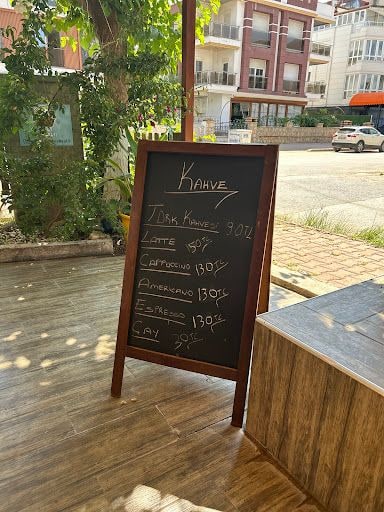 KAHVE
TÜRK KAHVESİ 90TL
LATTE 150TL
CAPPUCCINO 130TL
AMERICANO 130TL
ESPRESSO 130TL
ÇAY